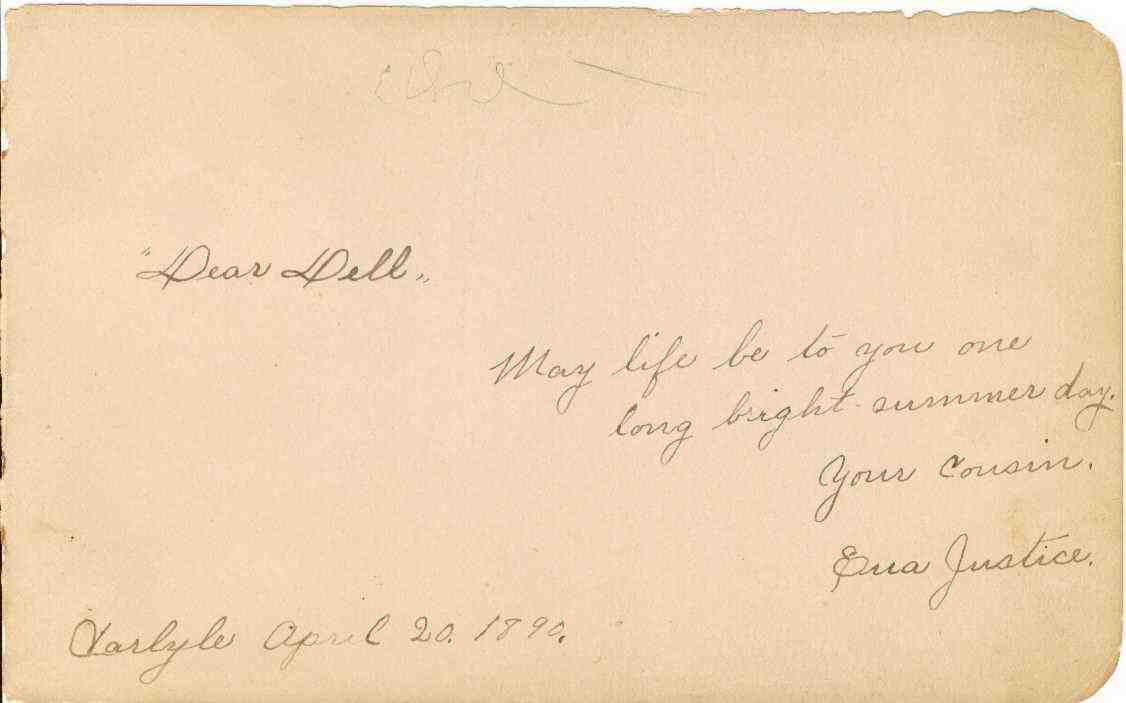 "Dear Dell„
May life be to you one
long bright summer day.
Your Cousin.
Justice.
Carlyle April 20. 1890.